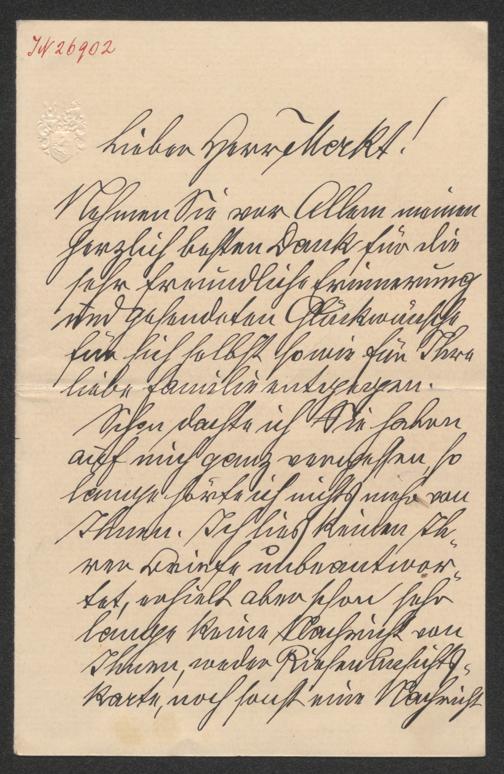 IN 26902
Lieber Herr Merkt!
Nehmen Sie vor Allem meinen
herzlich besten Dank für die
sehr freundliche Erinnerung
und gesendeten Glückwünsche
für sich selbst sowie für Ihre
liebe Familie entgegen.
Schon dachte ich Sie haben
auf mich ganz vergessen, so
lange hörte ich nichts mehr von
Ihnen. Ich ließ keinen Ih-
rer Briefe unbeantwor-
tet, erhielt aber schon sehr
lange keine Nachricht von
Ihnen, weder Ansichts-
karte, noch sonst eine Nachricht